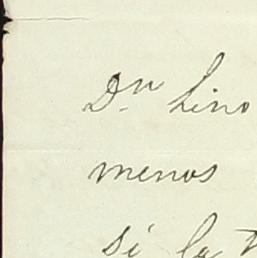 Dn Lino
menos
si la